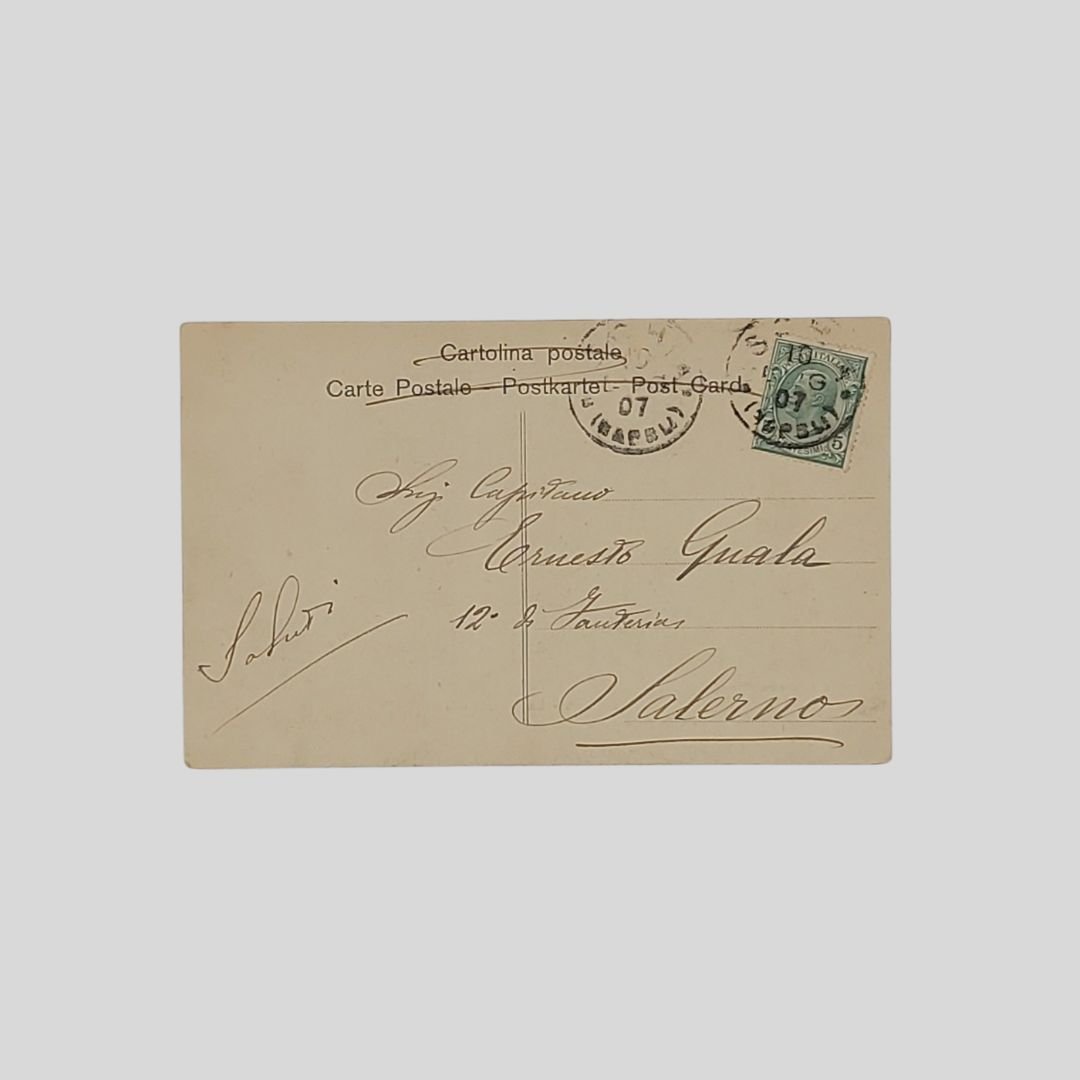 Cartolina postale
Carte Postale - Postkartet - Post Card.
10
07
(NAPOLI)
10
G
07
(NAPOLI)
ITALIANE
Sig Capitano
Ernesto Guala
12° di Fanteria
Salerno
Saluti